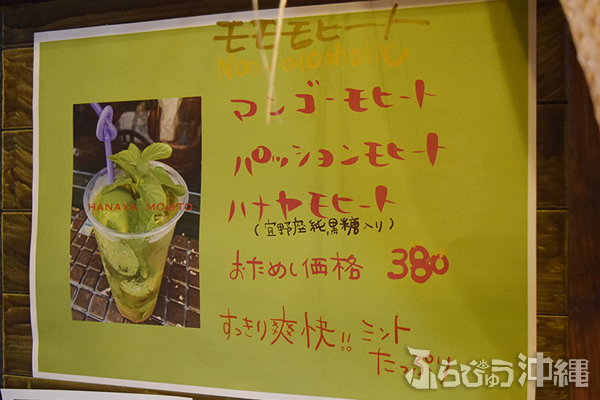 モモモヒート
Non-alcoholic
マンゴーモヒート
パッションモヒート
ハナヤモヒート
(宜野座純黒糖入り)
おためし価格 380
すっきり爽快!! ミント
たっぷり
HANAYA MOJITO
ふらびゅう沖縄